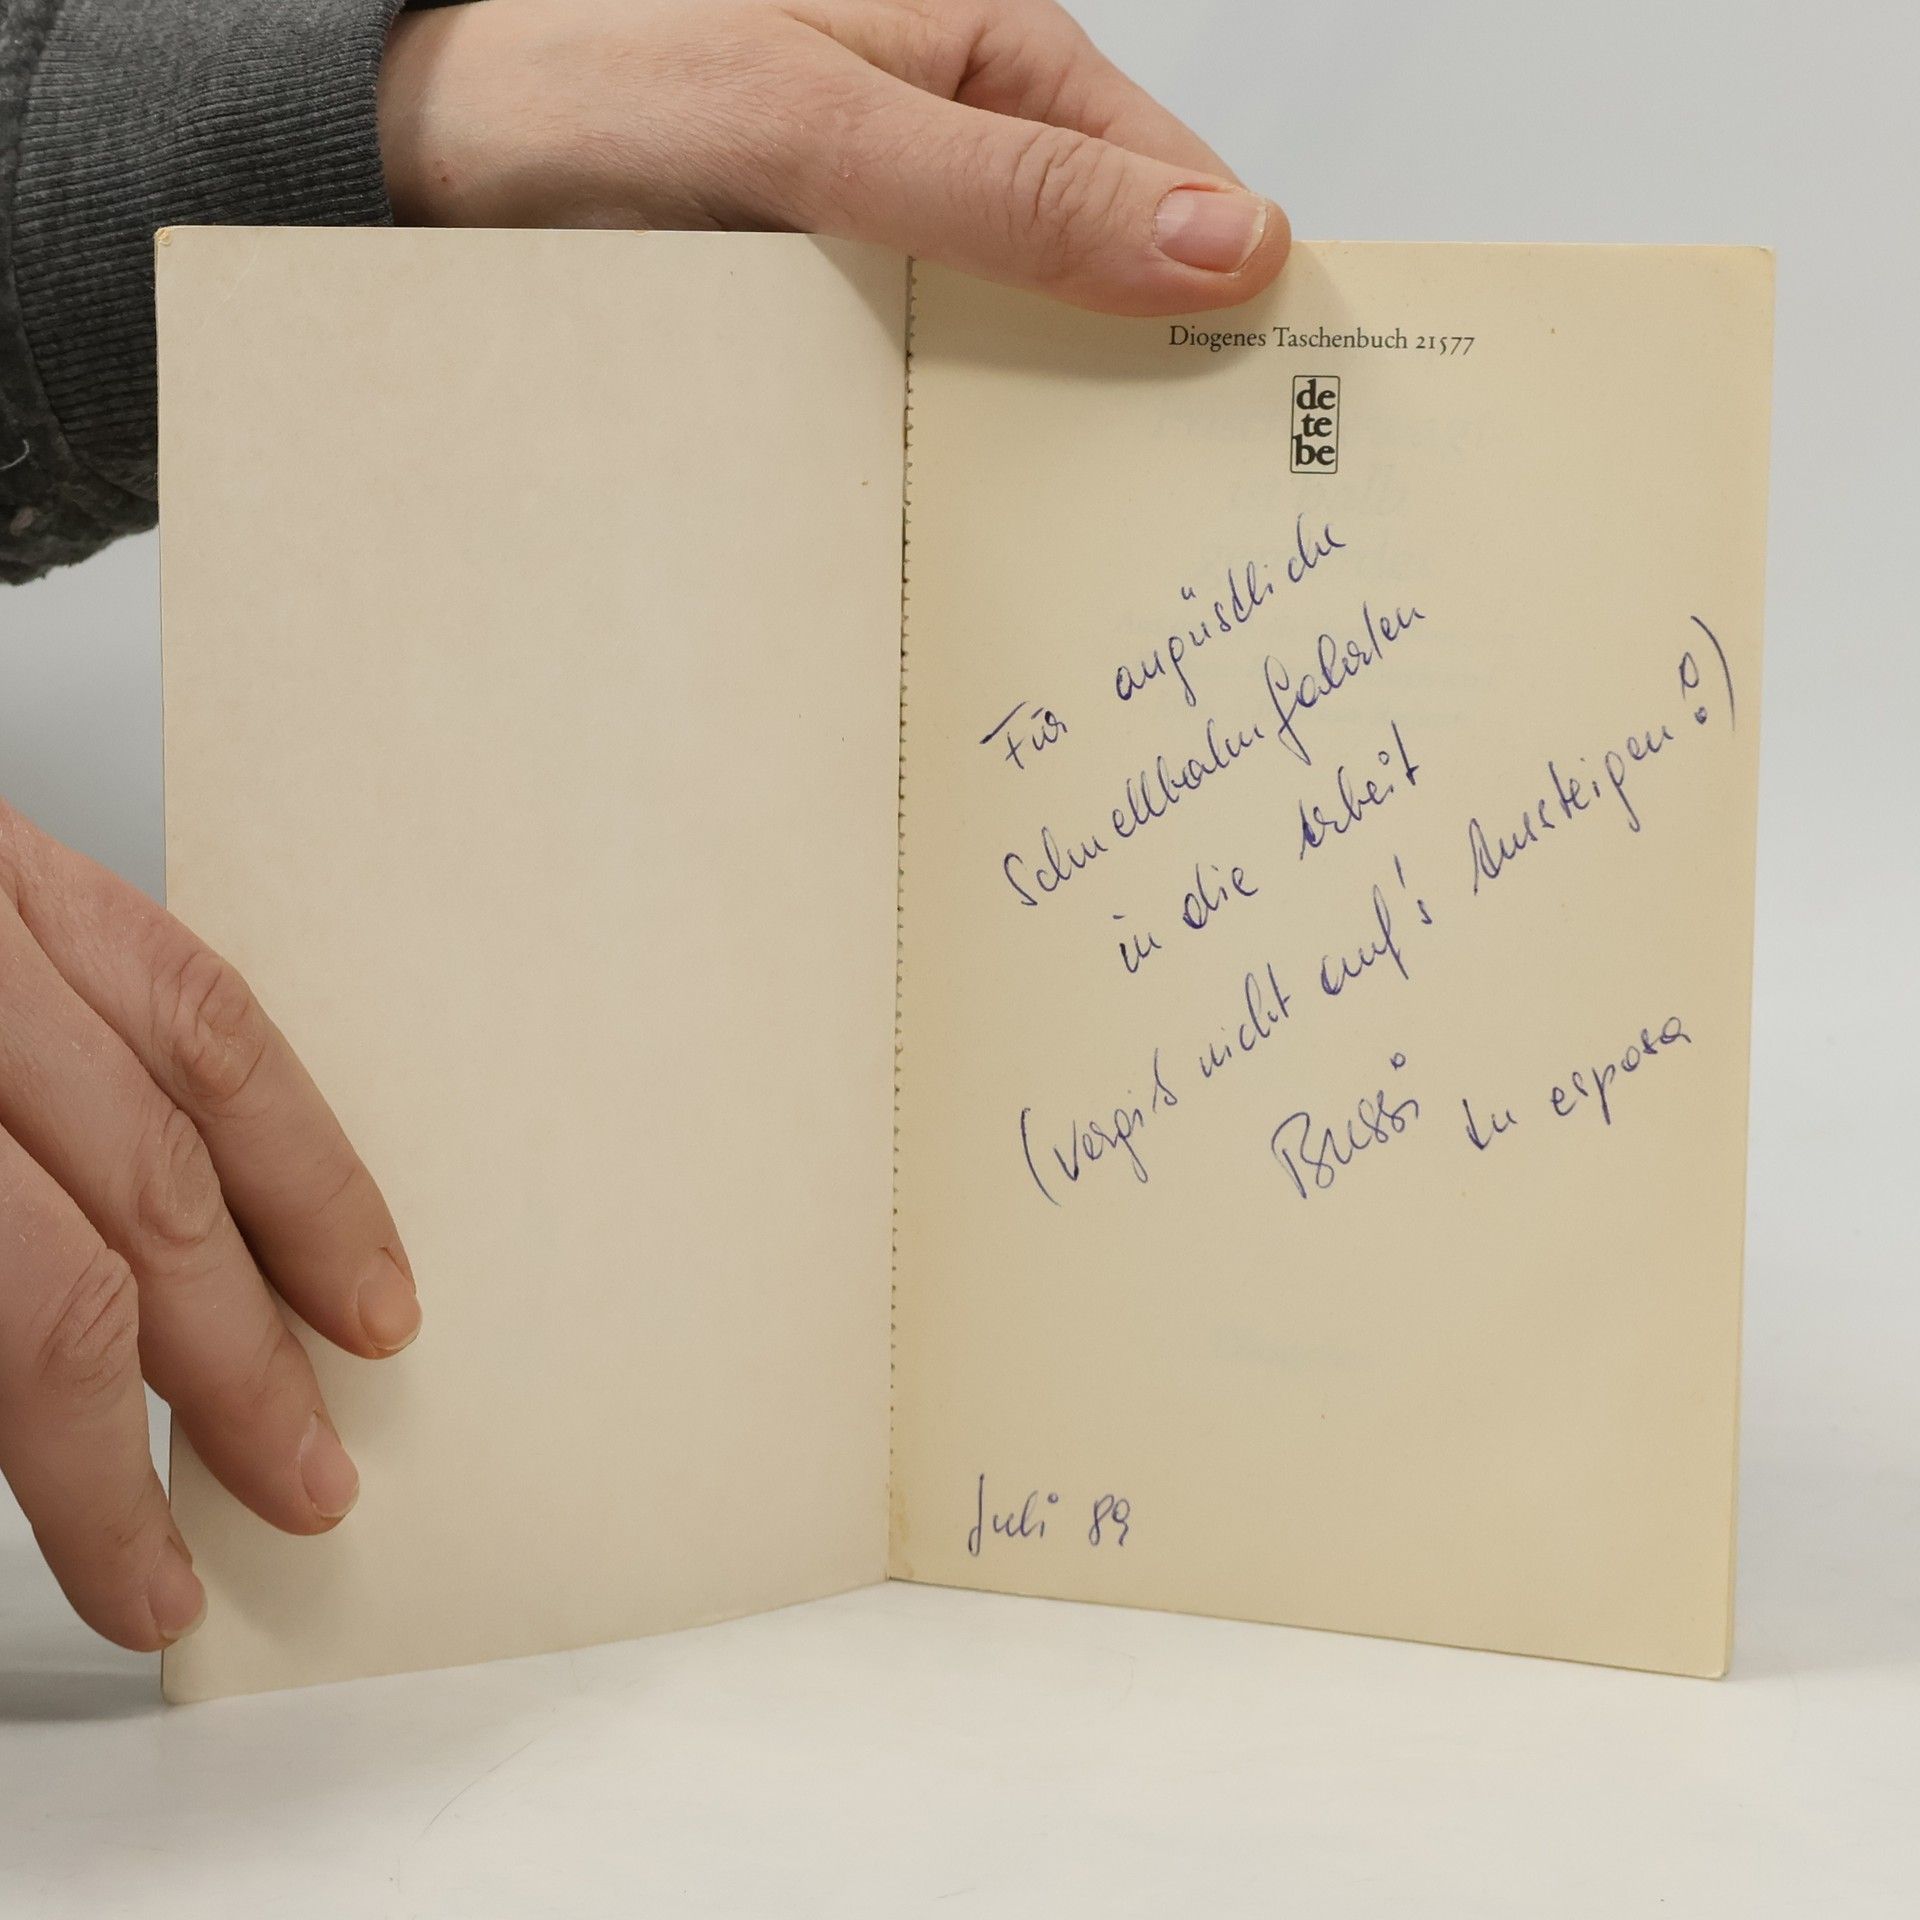 Diogenes Taschenbuch 21577
de
te
be
Für augüstliche
Schnellbahnfahrten
in die Arbeit
(Vergiß nicht auf's Aussteigen!)
Bussi tu esposa
Juli 89